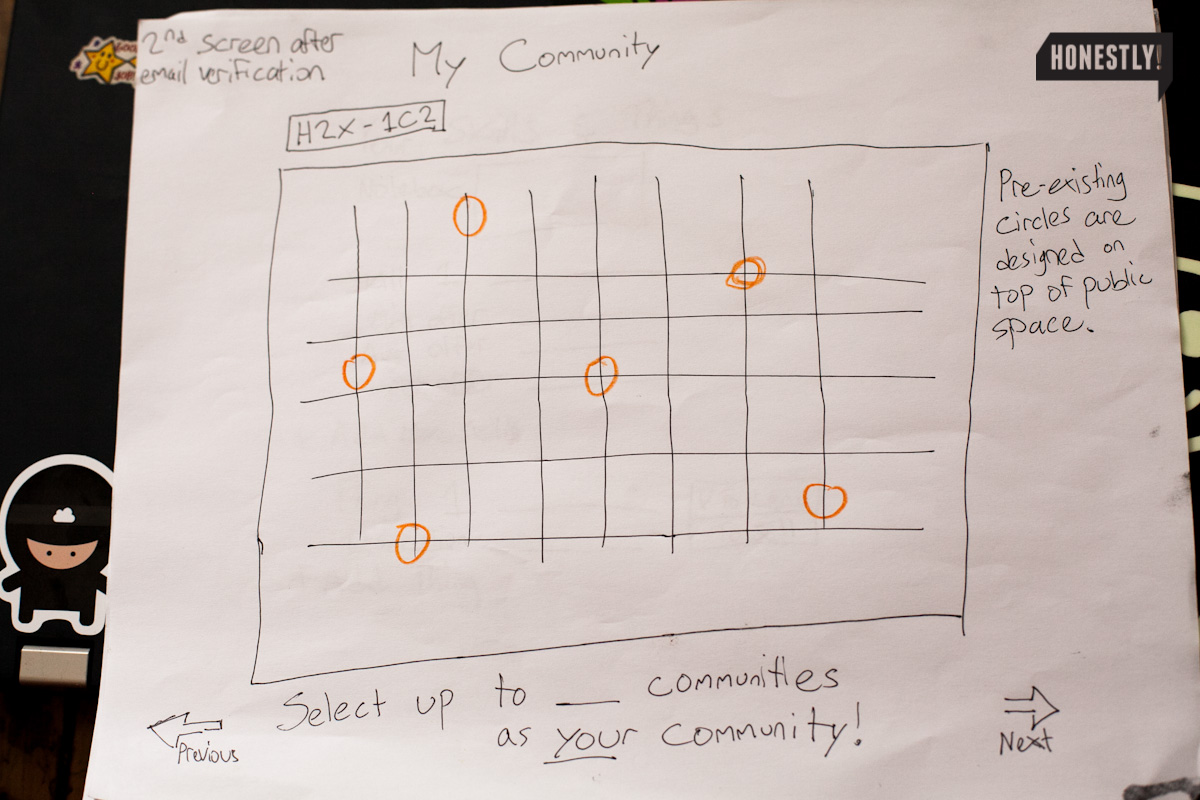 2nd screen after
email verification
My Community
HONESTLY!
H2X-1C2
Pre-existing
circles are
designed on
top of public
space.
Select up to ___ communities
as your community!
Previous
Next